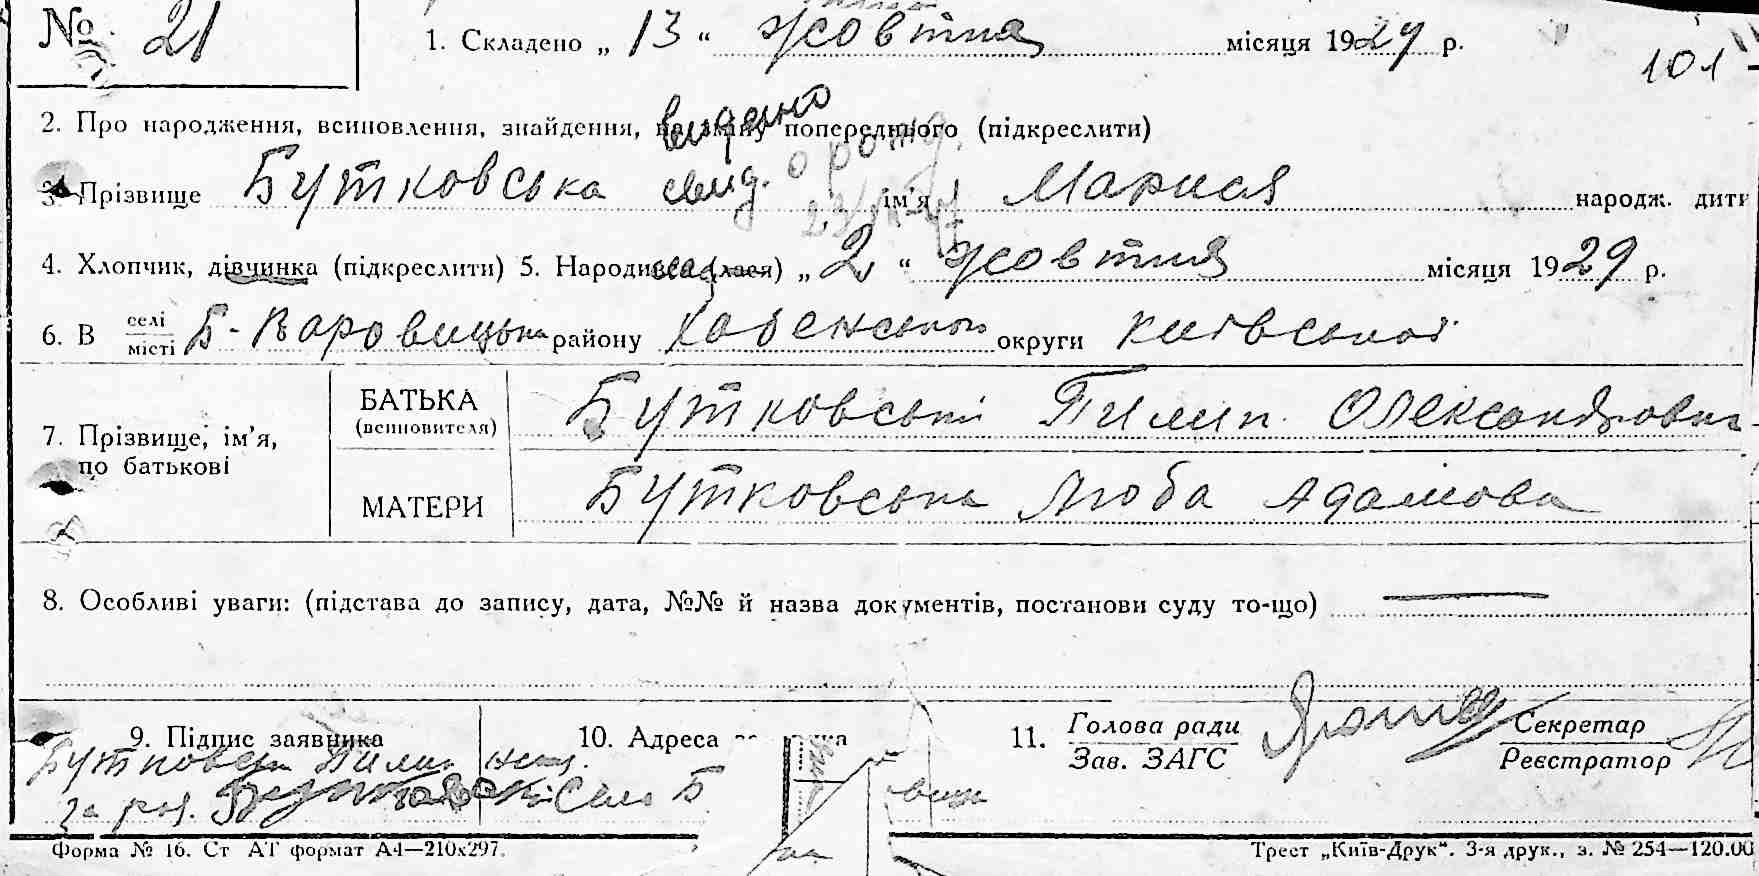 № 21 1. Складено „ 13 “ жовтня місяця 1929 р.
101
2. Про народження, всиновлення, знайдення, на зміну попереднього (підкреслити)
видано
3. Прізвище Бутковська свид. о рожд. ім'я Марися народж. дити
4. Хлопчик, дівчинка (підкреслити) 5. Народи (лася) „ 2 “ жовтня місяця 1929 р.
6. В селі місті Б-Варовицьк району Хабенського округи Київської
7. Прізвище, ім'я, по батькові
БАТЬКА (всиновителя) Бутковські Пилип Олександрович
МАТЕРИ Бутковська Люба Адамова
8. Особливі уваги: (підстава до запису, дата, №№ й назва документів, постанови суду то-що)
9. Підпис заявника 10. Адреса 11. Голова ради Зав. ЗАГС Секретар Реєстратор
Бутковськ Пилип
за Село Б
Форма № 16. Ст АТ формат А4—210х297.
Трест „Київ-Друк“. 3-я друк., з. № 254—120.00